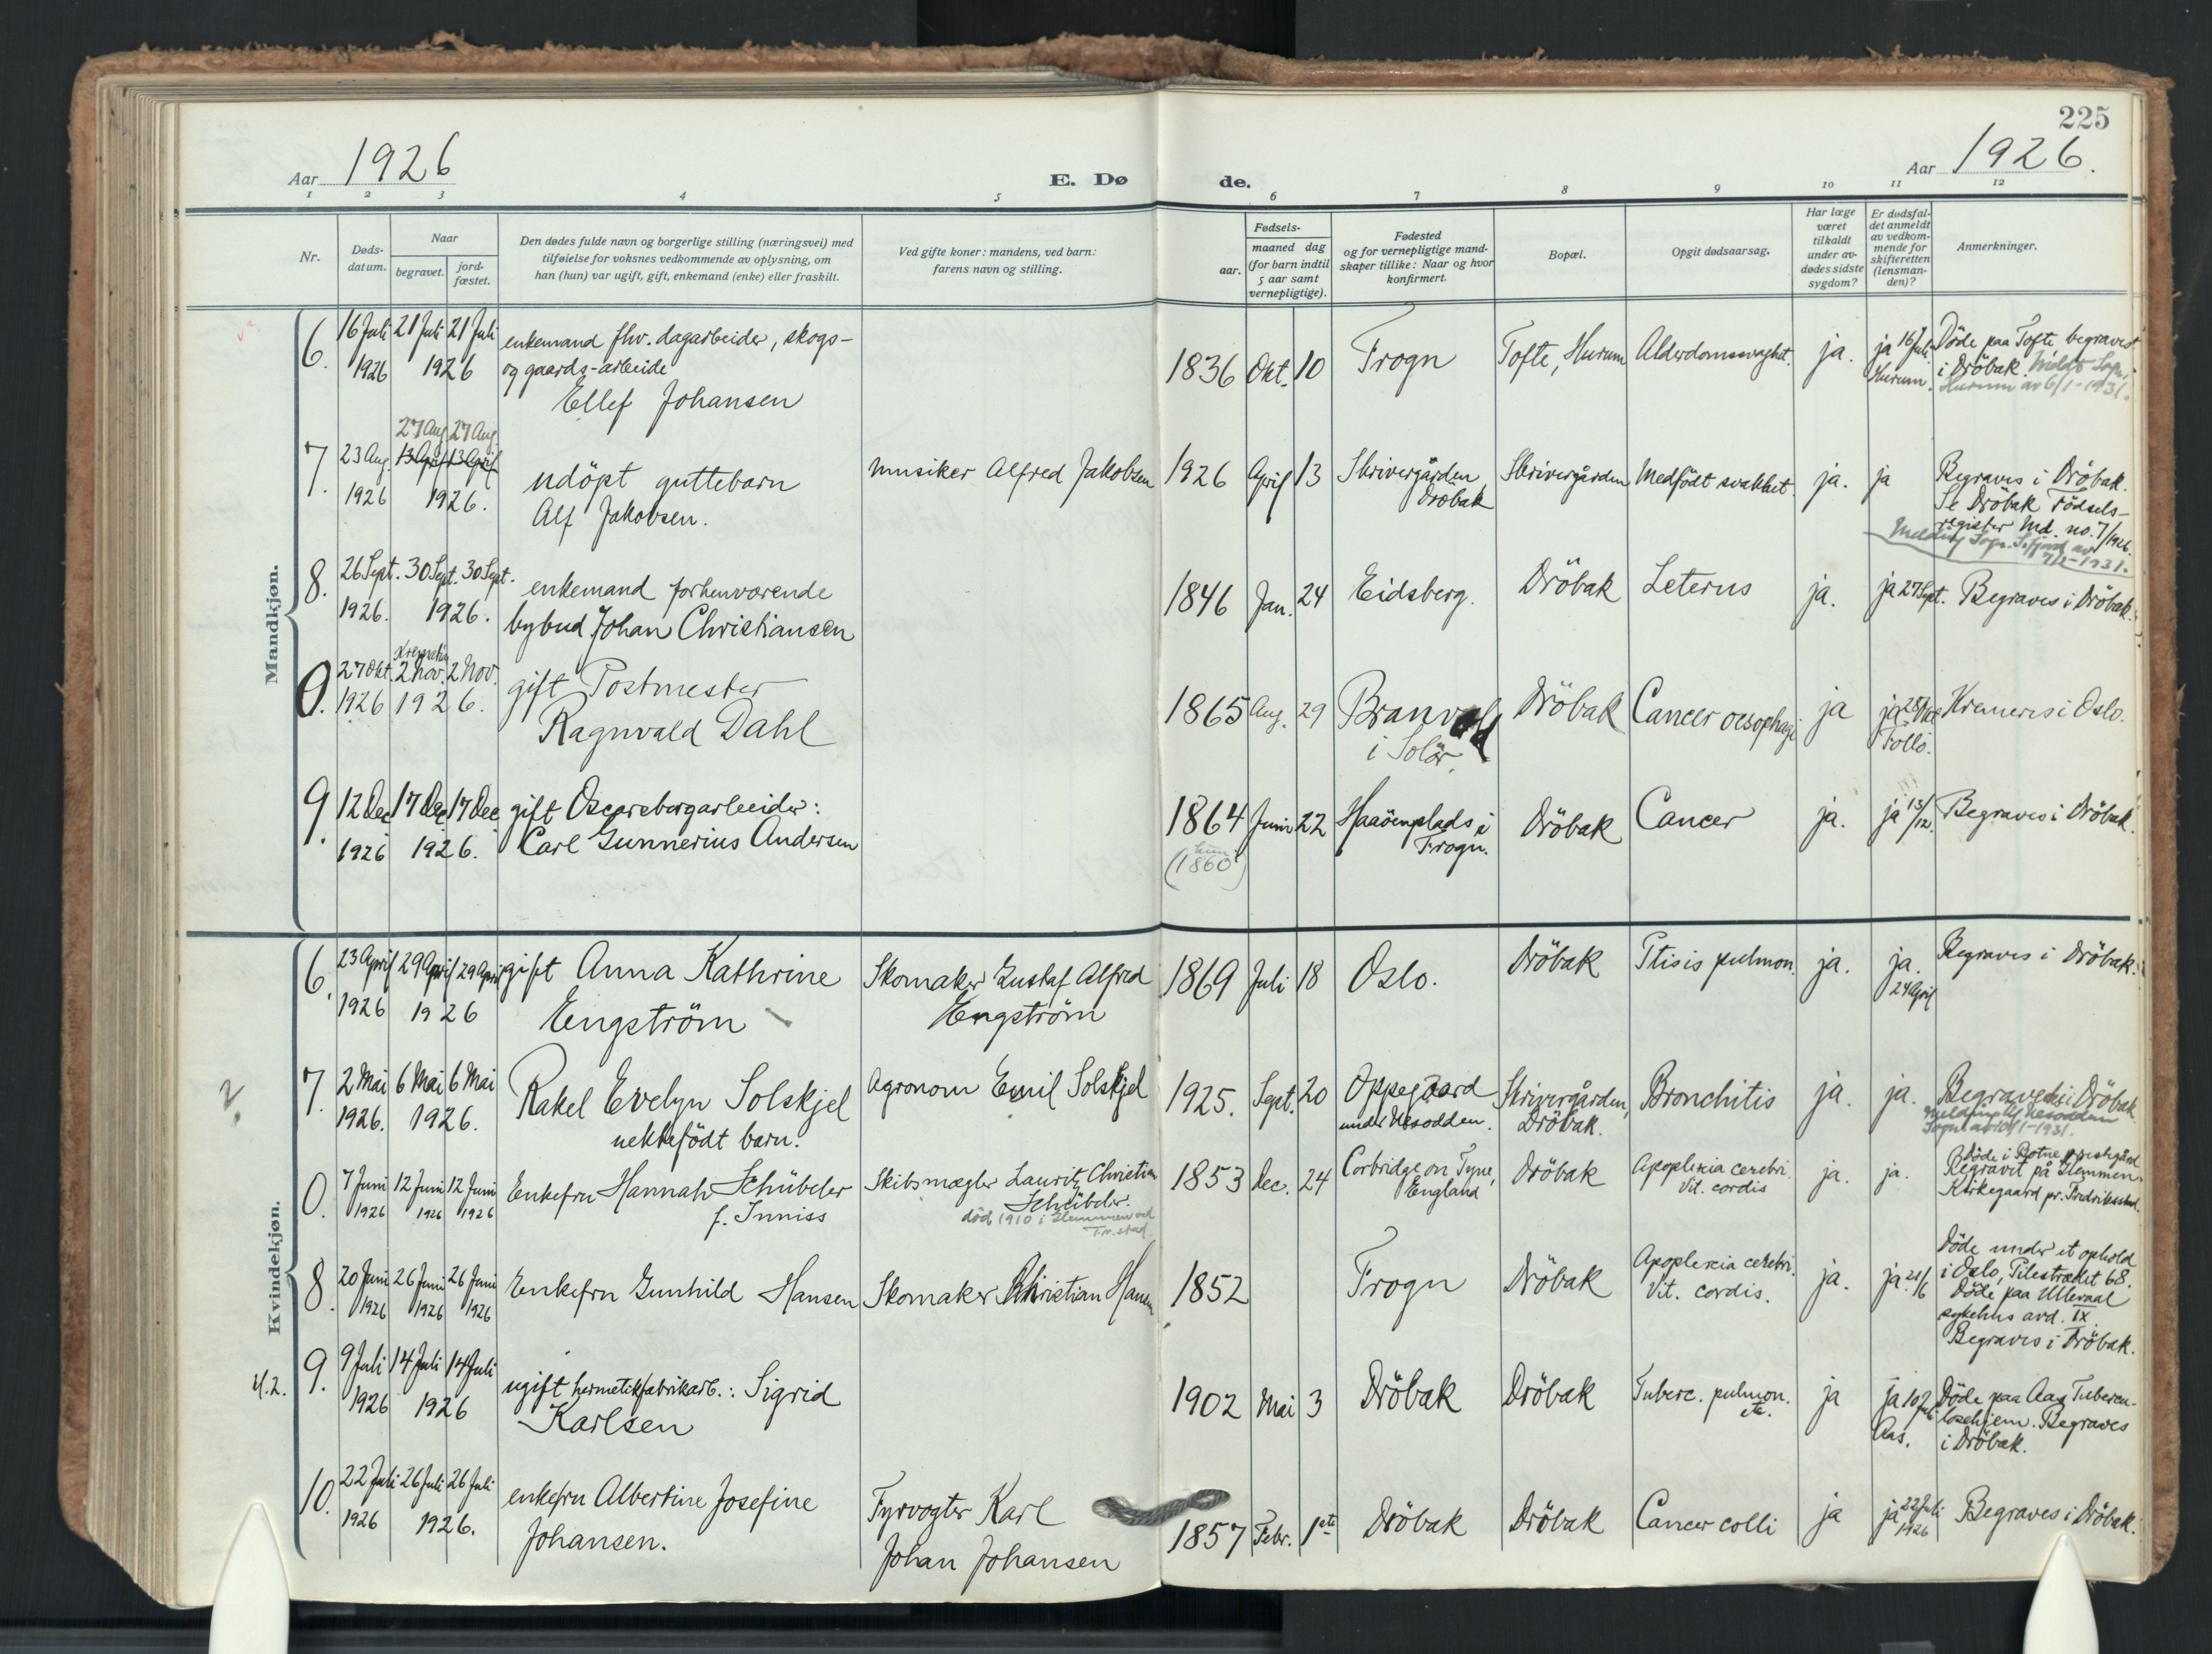 225
Aar 1926
E. Dø de.
Aar 1926.
1 2 3 4 5 6 7 8 9 10 11 12
Nr.
Døds-
datum.
Naar
begravet.
jord-
fæstet.
Den dødes fulde navn og borgerlige stilling (næringsvei) med
tilføielse for voksnes vedkommende av oplysning, om
han (hun) var ugift, gift, enkemand (enke) eller fraskilt.
Ved gifte koner: mandens, ved barn:
farens navn og stilling.
Fødsels-
aar.
maaned dag
(for barn indtil
5 aar samt
vernepligtige).
Fødested
og for vernepligtige mand-
skaper tillike: Naar og hvor
konfirmert.
Bopæl.
Opgit dødsaarsag.
Har læge
været
tilkaldt
under av-
dødes sidste
sygdom?
Er dødsfal-
det anmeldt
av vedkom-
mende for
skifteretten
(lensman-
den)?
Anmerkninger.
Mandkjøn.
6. 16 Juli 1926 21 Juli 21 Juli 1926
enkemand fhv. dagarbeider, skogs-
og gaards-arbeide
Ellef Johansen
1836 Okt. 10 Frogn Tofte, Hurum Alderdomssvaghet. ja. ja 16 Juli Hurum.
Döde paa Tofte begravet
i Dröbak. Meldt Sogn.
Hurum av 6/1-1931.
7. 23 Aug. 1926 27 Aug 27 Aug.
13 April 13 April 1926.
udöpt guttebarn
Alf Jakobsen.
musiker Alfred Jakobsen
1926 April 13 Skrivergården,
Dröbak
Skrivergården Medfödt svakhet. ja. ja
Begraves i Dröbak.
Se Dröbak Födsels-
register Md. no. 7/1926.
7/1-1931.
8. 26 Sept. 1926. 30 Sept. 30 Sept. 1926.
enkemand forhenværende
bybud Johan Christiansen
1846 Jan. 24 Eidsberg. Dröbak Leterus ja. ja 27 Sept. Begraves i Dröbak.
0. 27 Okt. 1926 Kremation 2 Nov. 2 Nov. 1926.
gift Postmester
Ragnvald Dahl
1865 Aug. 29 Branvold
i Solör.
Dröbak Cancer oesophagi ja ja 28 Okt Follo. Kremeres i Oslo.
9. 12 Dec 1926 17 Dec 17 Dec. 1926.
gift Oscarsborgarbeider:
Carl Gunnerius Andersen
1864 (1860) Juni 22 Haaöenplads i
Frogn.
Dröbak Cancer ja. ja 13/12. Begraves i Dröbak.
Kvindekjøn.
6. 23 April 1926 29 April 29 April 1926
gift Anna Kathrine
Engström
Skomaker Gustaf Alfred
Engström
1869 Juli 18 Oslo. Dröbak Ptisis pulmon. ja. ja. 24 April Begraves i Dröbak.
7. 2 Mai 1926. 6 Mai 6 Mai 1926.
Rakel Evelyn Solskjel
uektefödt barn.
Agronom Emil Solskjel
1925. Sept. 20 Oppegaard
under Nesodden.
Skrivergården,
Dröbak.
Bronchitis ja. ja.
Begravedes i Dröbak
Melding til Nesodden
Sogn av 10/1-1931.
0. 7 Juni 1926 12 Juni 1926 12 Juni 1926
Enkefru Hannah Schübeler
f. Inniss
Skibsmægler Lauritz Christian
Schübeler.
död 1910 i Glemmen ved
Fr.stad.
1853 Dec. 24 Corbridge on Tyne,
England
Dröbak Apoplexia cerebri
Vit. cordis
ja. ja.
Döde i Botne prestegård
Begravet på Glemmen
Kirkegaard pr. Fredrikstad.
8. 20 Juni 1926 26 Juni 1926 26 Juni 1926
Enkefru Gunhild Hansen Skomaker Christian Hansen
1852 Frogn Dröbak Apoplexia cerebri.
Vit. cordis.
ja. ja 21/6
Döde under et ophold
i Oslo, Pilestrædet 68.
Döde paa Ullevaal
sykehus avd. IX.
Begraves i Dröbak.
9. 9 Juli 1926 14 Juli 14 Juli 1926
ugift hermetikfabrikarb.: Sigrid
Karlsen
1902 Mai 3 Dröbak Dröbak Tuberc. pulmon.
etc.
ja ja 10 Juli Aas.
Döde paa Aas Tubercu-
losehjem. Begraves
i Dröbak.
10. 22 Juli 1926 26 Juli 26 Juli 1926.
enkefru Albertine Josefine
Johansen.
Fyrvogter Karl
Johan Johansen
1857 Febr. 1ste Dröbak Dröbak Cancer colli ja ja 22 Juli 1926 Begraves i Dröbak.